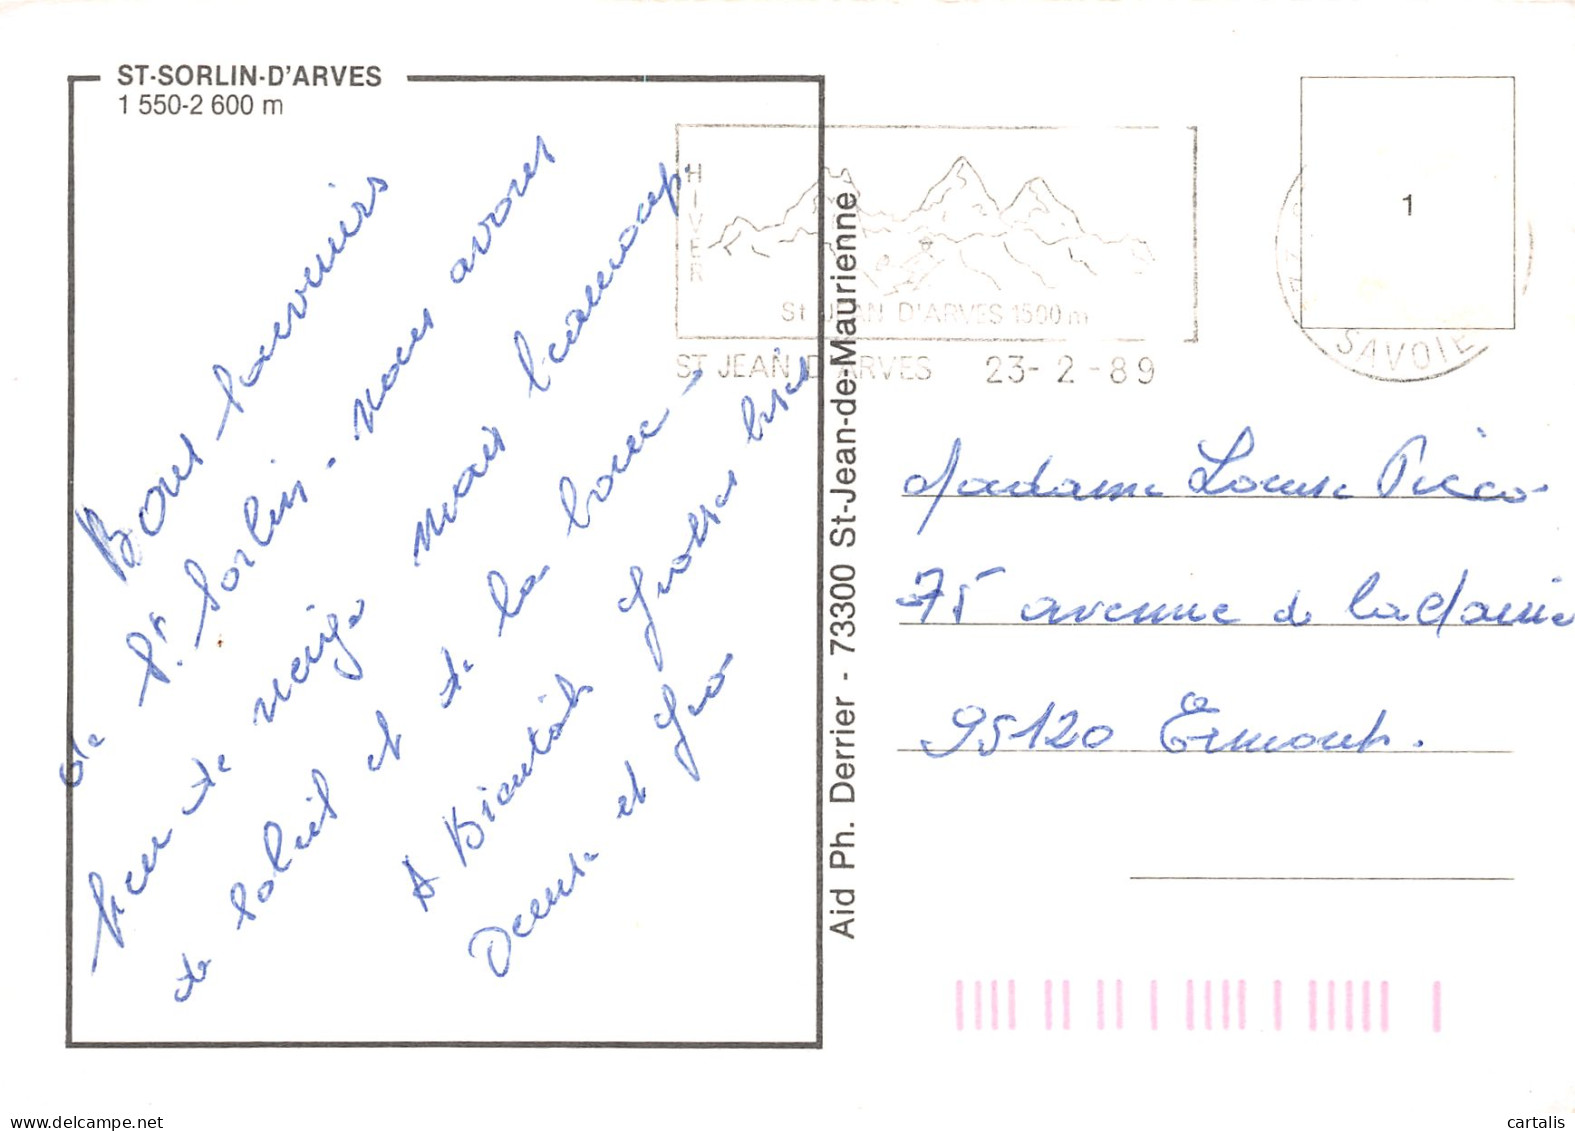 ST-SORLIN-D'ARVES
1 550-2 600 m
Bons souvenirs
de St. Sorlin - nous avons
peu de neige mais beaucoup
de soleil et de la boue -
A Bientôt grosses bises
et
HIVER
St JEAN D'ARVES 1500 m
ST JEAN D'ARVES 23-2-89
SAVOIE
1
Aid Ph. Derrier - 73300 St-Jean-de-Maurienne
Madame Louise Picco
75 avenue de la
95120 Ermont.
www.delcampe.net
cartalis